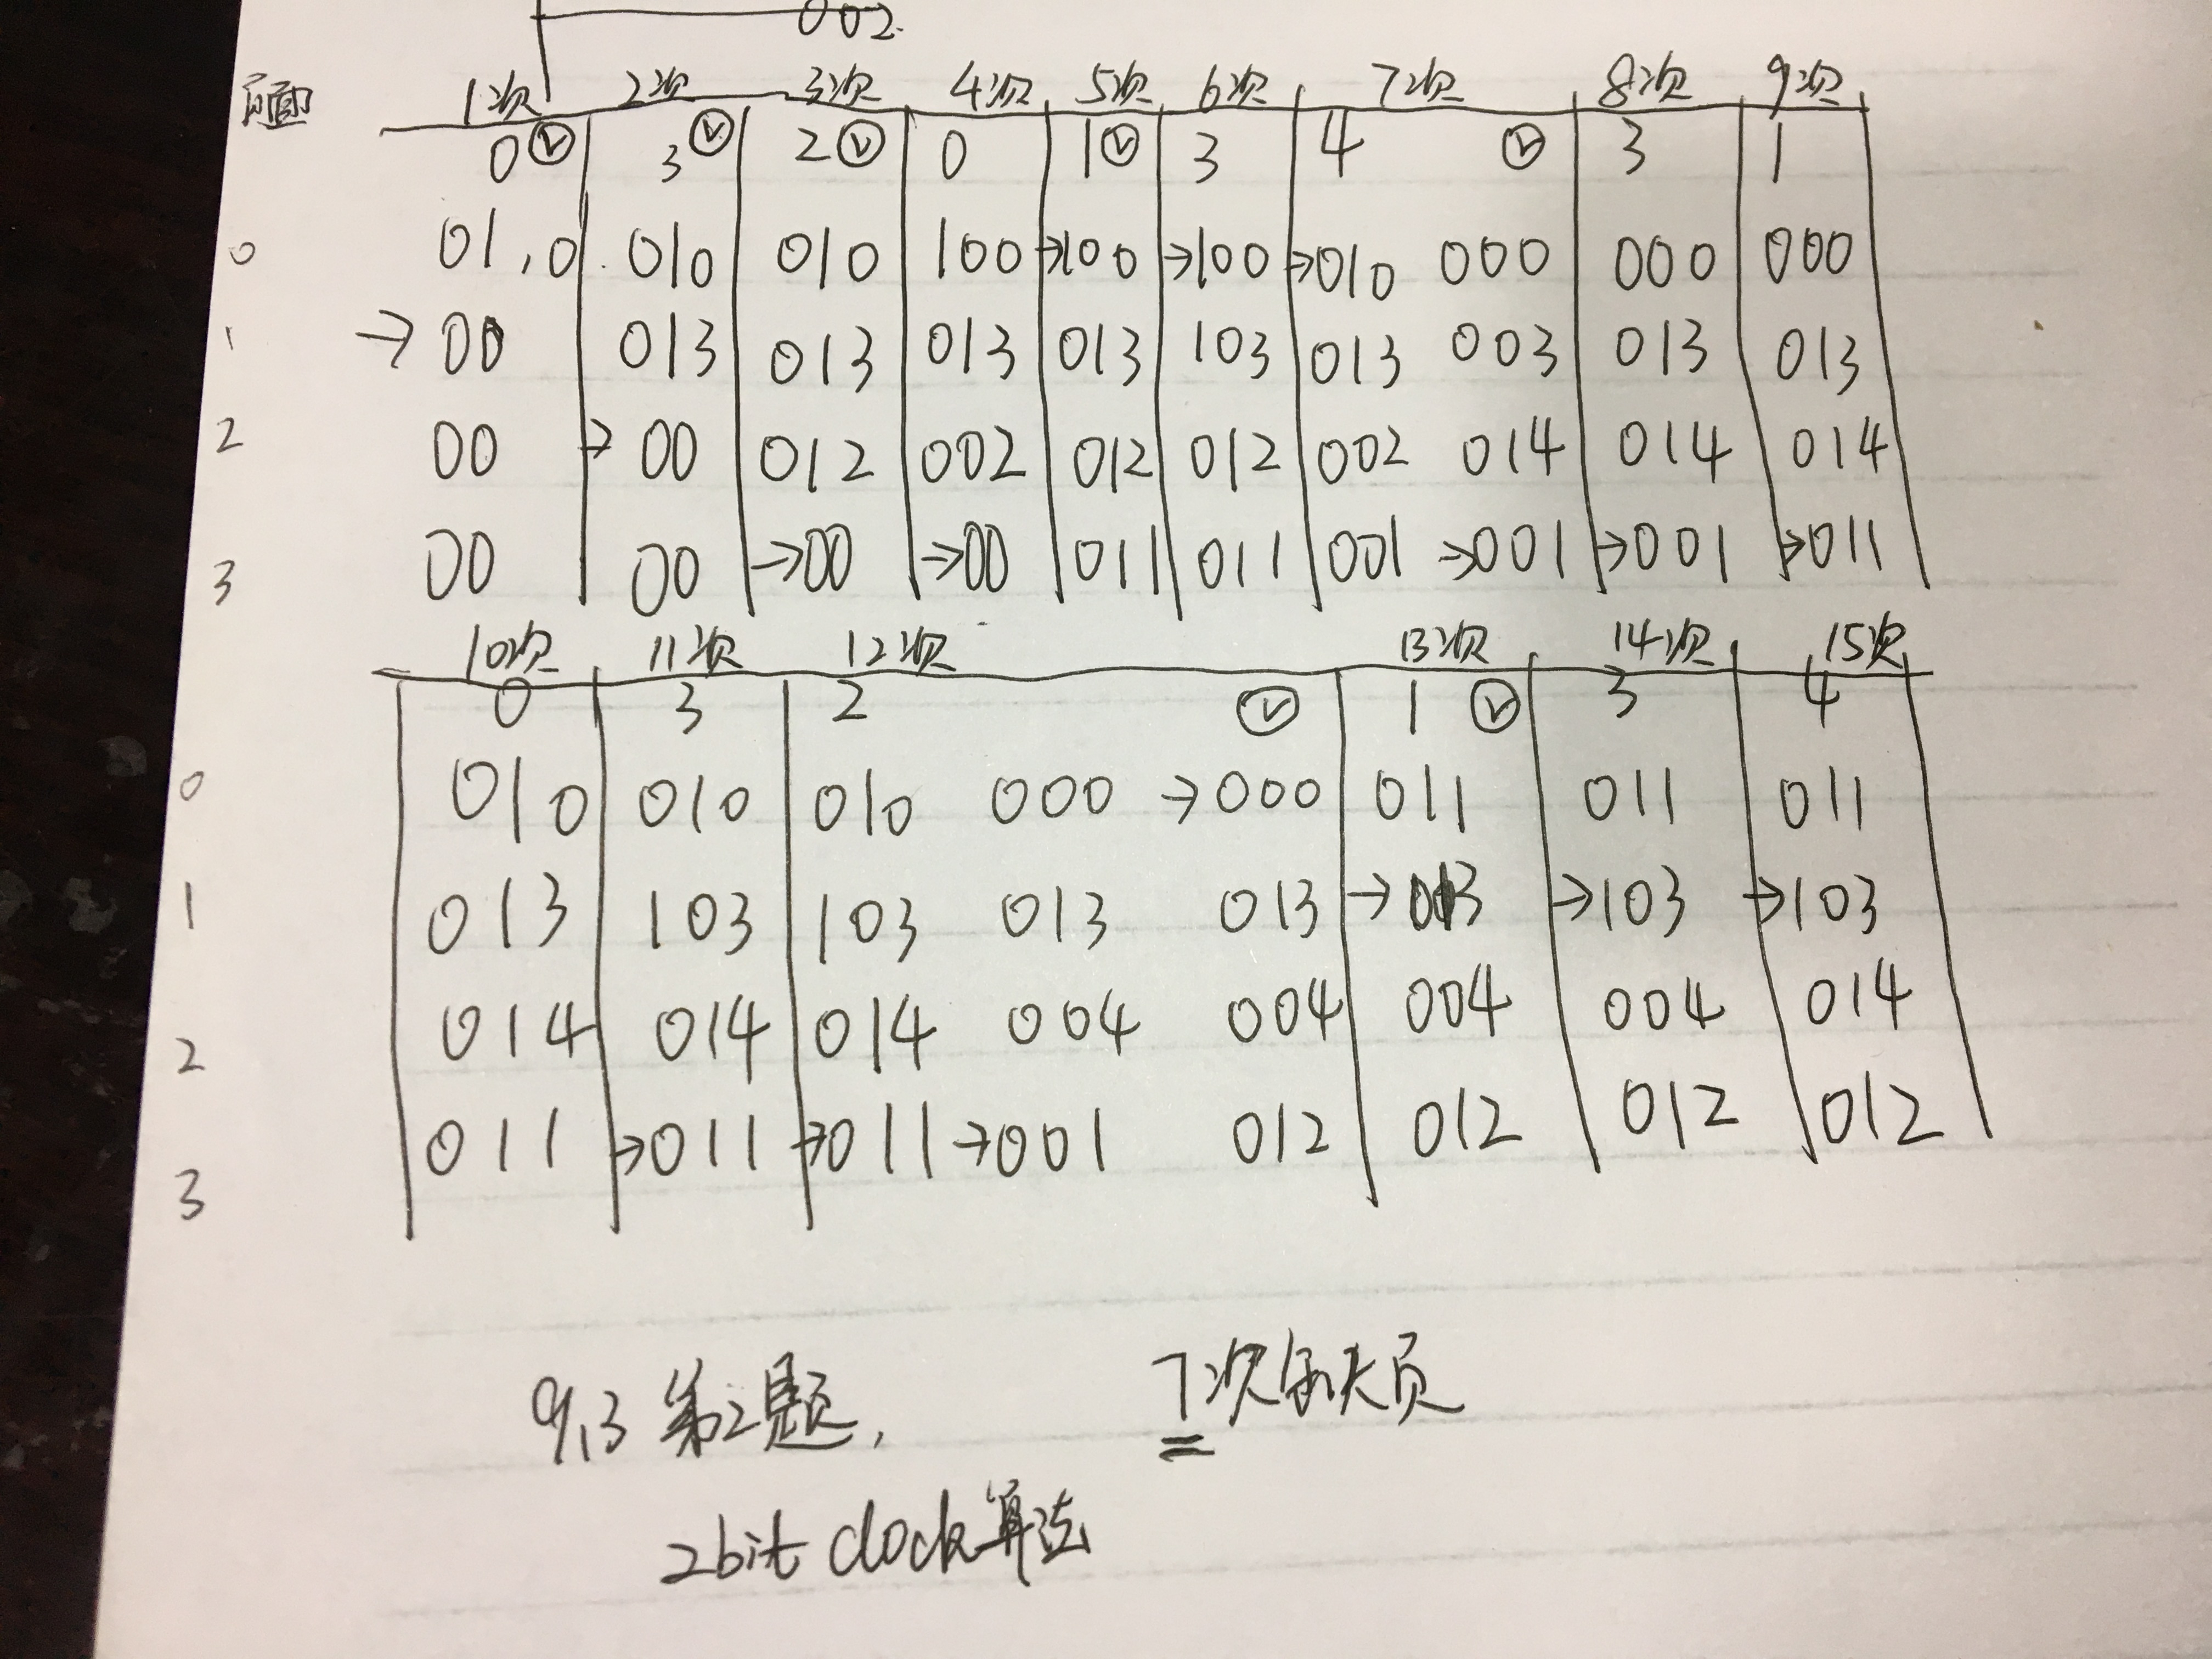 002.
页面 1次 2次 3次 4次 5次 6次 7次 8次 9次
0✓ 3✓ 2✓ 0 1✓ 3 4 ✓ 3 1
0 01,0 010 010 100 →100 →100 →010 000 000 000
1 →00 013 013 013 013 103 013 003 013 013
2 00 →00 012 002 012 012 002 014 014 014
3 00 00 →00 →00 011 011 001 →001 →001 →011
10次 11次 12次 13次 14次 15次
0 3 2 ✓ 1 ✓ 3 4
0 010 010 010 000 →000 011 011 011
1 013 103 103 013 013 → →103 →103
2 014 014 014 004 004 004 004 014
3 011 →011 →011 →001 012 012 012 012
9.3 第2题, 7次缺失页
2bit clock算法